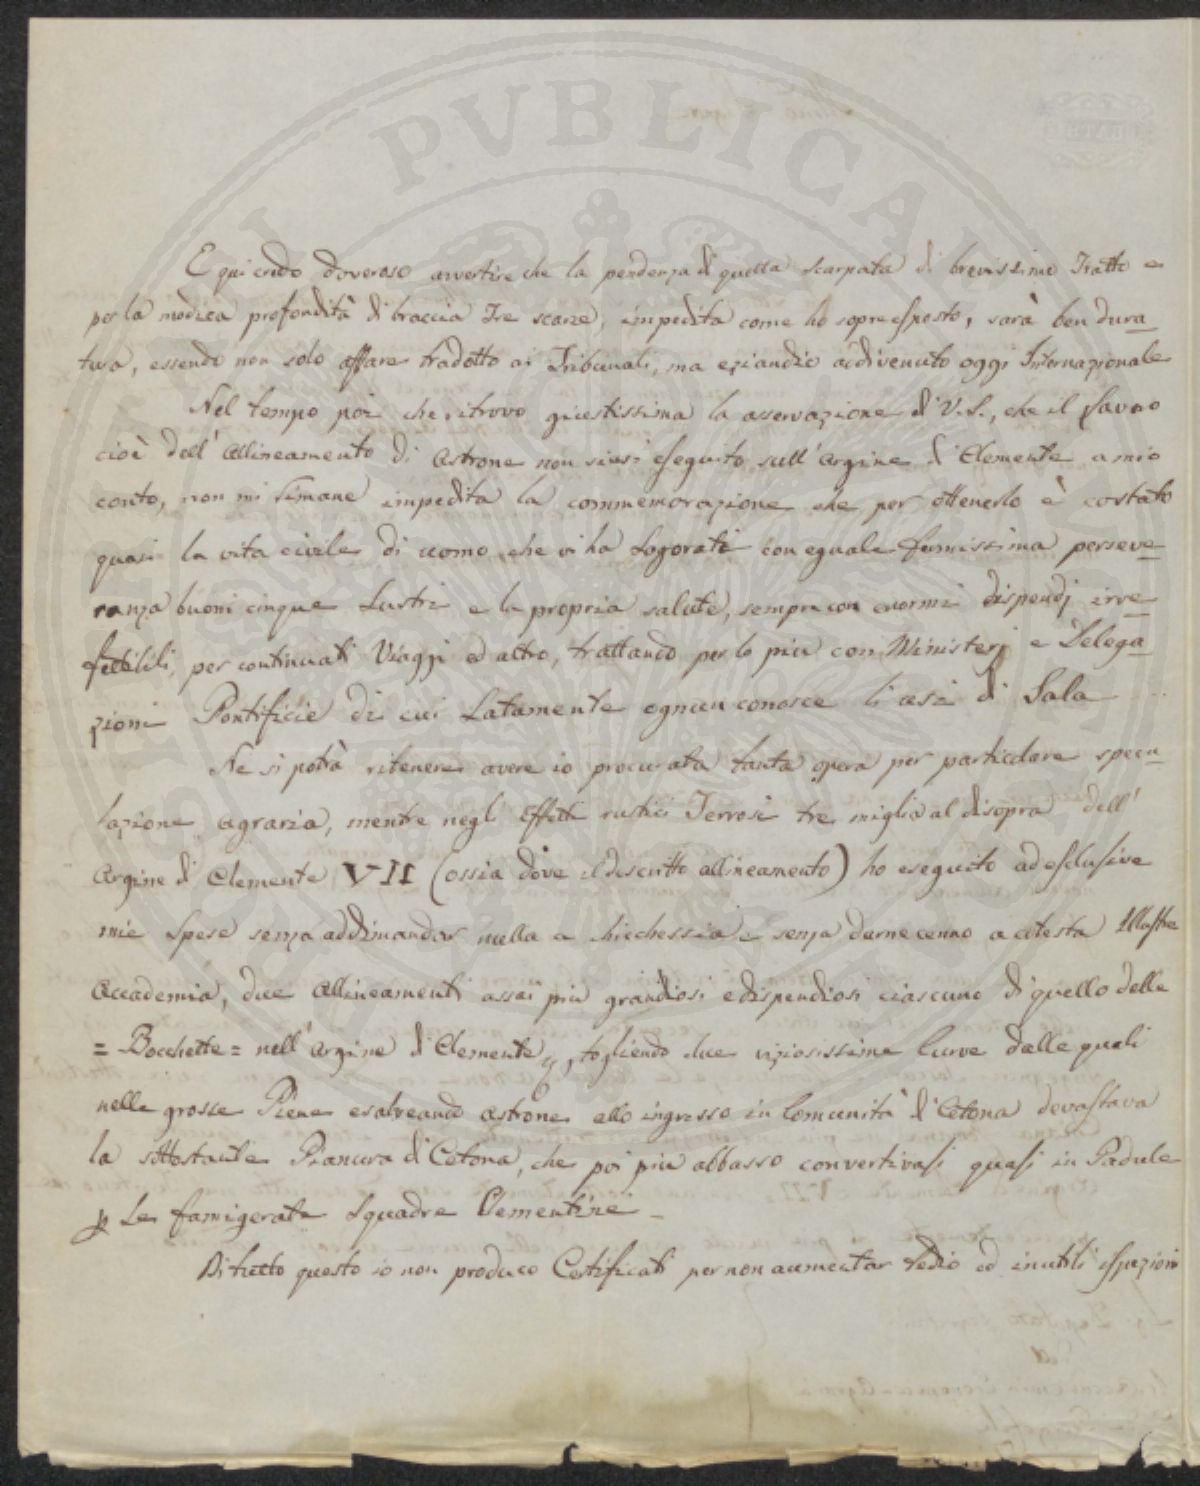 E qui credo doveroso avvertire che la pendenza di quella scarpata di brevissimo Tratto e
per la modica profondità di braccia Tre scarze, impedita come ho sopra esposto, sarà ben dura
tura, essendo non solo affare tradotto ai Tribunali, ma eziandio addivenuto oggi Internazionale
Nel tempo poi che ritrovo giustissima la asservazione di V.S., che il favoro
cioè dell' Allineamento di Astrone non siasi eseguito sull' Argine di Clemente a mio
conto, non mi rimane impedita la commemorazione che per ottenerlo è costato
quasi la vita civile di uomo, che vi ha Logorati con eguale fermissima perseve
ranza buoni cinque Lustri e la propria salute, sempre con enormi dispendj irre
fettibili, per continuati Viaggi ed altro, trattando per lo più con Ministerj e Delega
zioni Pontificie di cui Latamente ognun conosce li usi di Sala
Ne si potrà ritenere avere io procurata tanta opera per particolare specu
lazione agraria, mentre negli Effetti rustici Terrosi tre miglia al disopra dell'
Argine di Clemente VII (ossia dove il descritto allineamento) ho eseguito ad esclusive
mie Spese senza addimandar nulla a chichessia e senza darne cenno a cotesta Illustre
Accademia, due Allineamenti assai più grandiosi e dispendiosi ciascuno di quello delle
= Bocchette = nell' Argine di Clemente, togliendo due viziosissime Curve dalle quali
nelle grosse Piene esalveando Astrone allo ingresso in Comunità di Cetona devastava
la sottostante Pianura di Cetona, che poi più abbasso convertivasi quasi in Padule
Le famigerate Squadre Clementine
Di tutto questo io non produco Certificati per non aumentar tedio ed inutili ispezioni
PUBLICAE